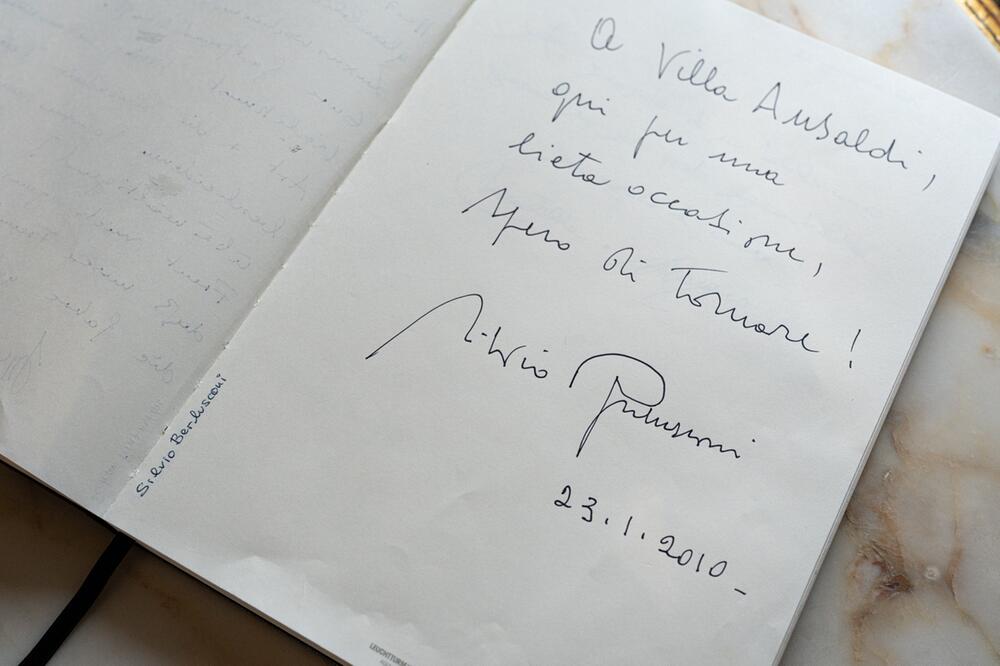 A Villa Ansaldi,
qui per una
lieta occasione,
spero di tornare!
Silvio Berlusconi
23.1.2010-
Silvio Berlusconi
LEUCHTTURM